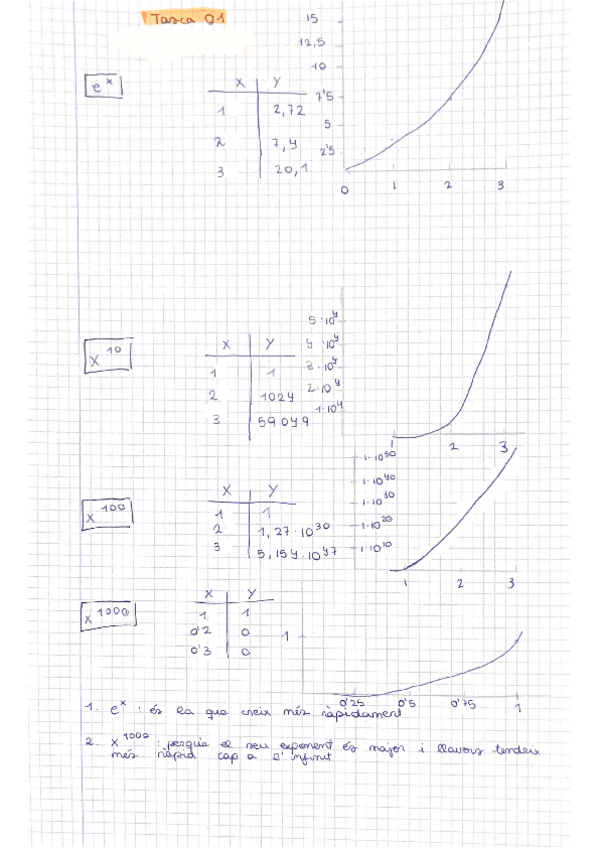 Tasca 01
e^x
X Y
1 2,72
2 7,4
3 20,1
15
12,5
10
7'5
5
2'5
0 1 2 3
x^10
X Y
1 1
2 1024
3 59049
5·10^4
4·10^4
3·10^4
2·10^4
1·10^4
1 2 3
x^100
X Y
1 1
2 1,27·10^30
3 5,154·10^47
1·10^50
1·10^40
1·10^30
1·10^20
1·10^10
1 2 3
x^1000
X Y
1 1
0'2 0
0'3 0
1
0'25 0'5 0'75 1
1. e^x : és la que creix més ràpidament
2. x^1000 : perquè el seu exponent és major i llavors tendeix
més ràpid cap a l'infinit